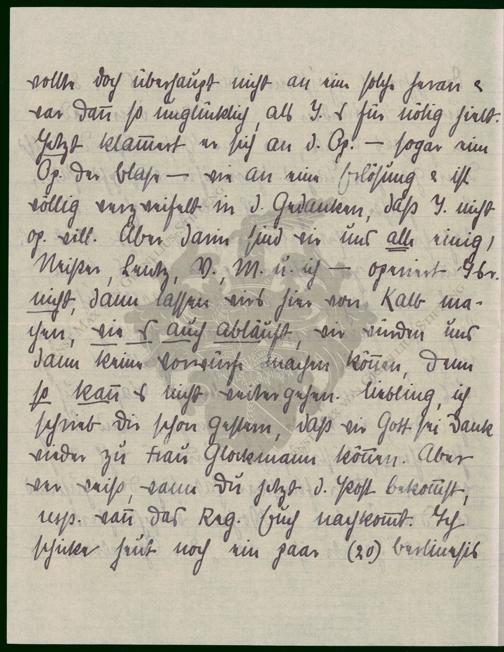 wollte doch überhaupt nicht an eine solche heran &
war dañ so unglücklich, als J. es für nötig hielt.
Jetzt klam̄ert er sich an d. Op. – sogar eine
Op. der Blase – wie an eine Erlösung & ist
völlig verzweifelt in d. Gedanken, daß J. nicht
op. will. Aber darin sind wir uns alle einig,
Meißer, Lentz, V., M. u. ich – operiert Jbr.
nicht, dann lassen wirs hier von Kalb ma-
chen, wie es auch abläuft, wir würden uns
dann keine Vorwürfe machen köñen, denn
so kañ es nicht weitergehen. Liebling, ich
schrieb Dir schon gestern, daß wir Gott sei Dank
wieder zu Frau Glockmann köñen. Aber
wer weiß, wann Du jetzt d. Post bekommst,
resp. wañ das Reg. Euch nachkom̄t. Ich
schicke heut noch ein paar (20)